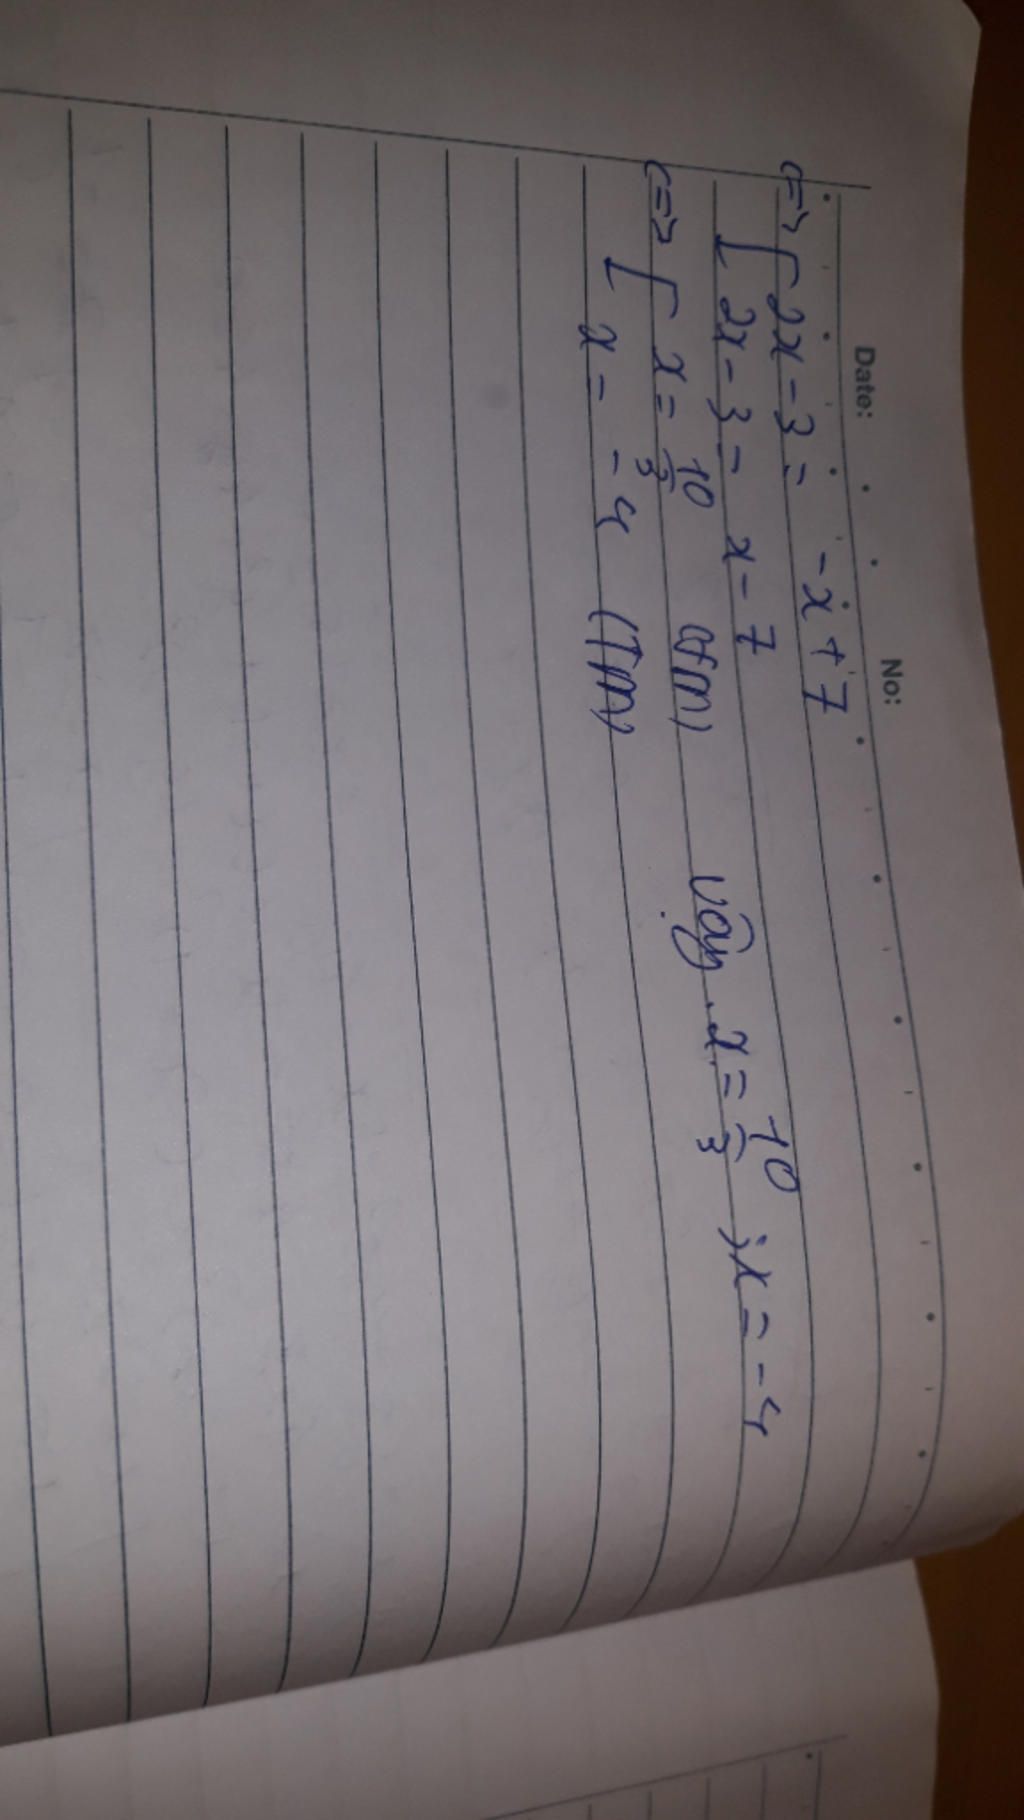 Date: No:
<=> [ 2x - 3 = -x + 7
[ 2x - 3 = x - 7
<=> [ x = 10/3 (tm) Vậy x = 10/3 ; x = -4
[ x = -4 (Tm)